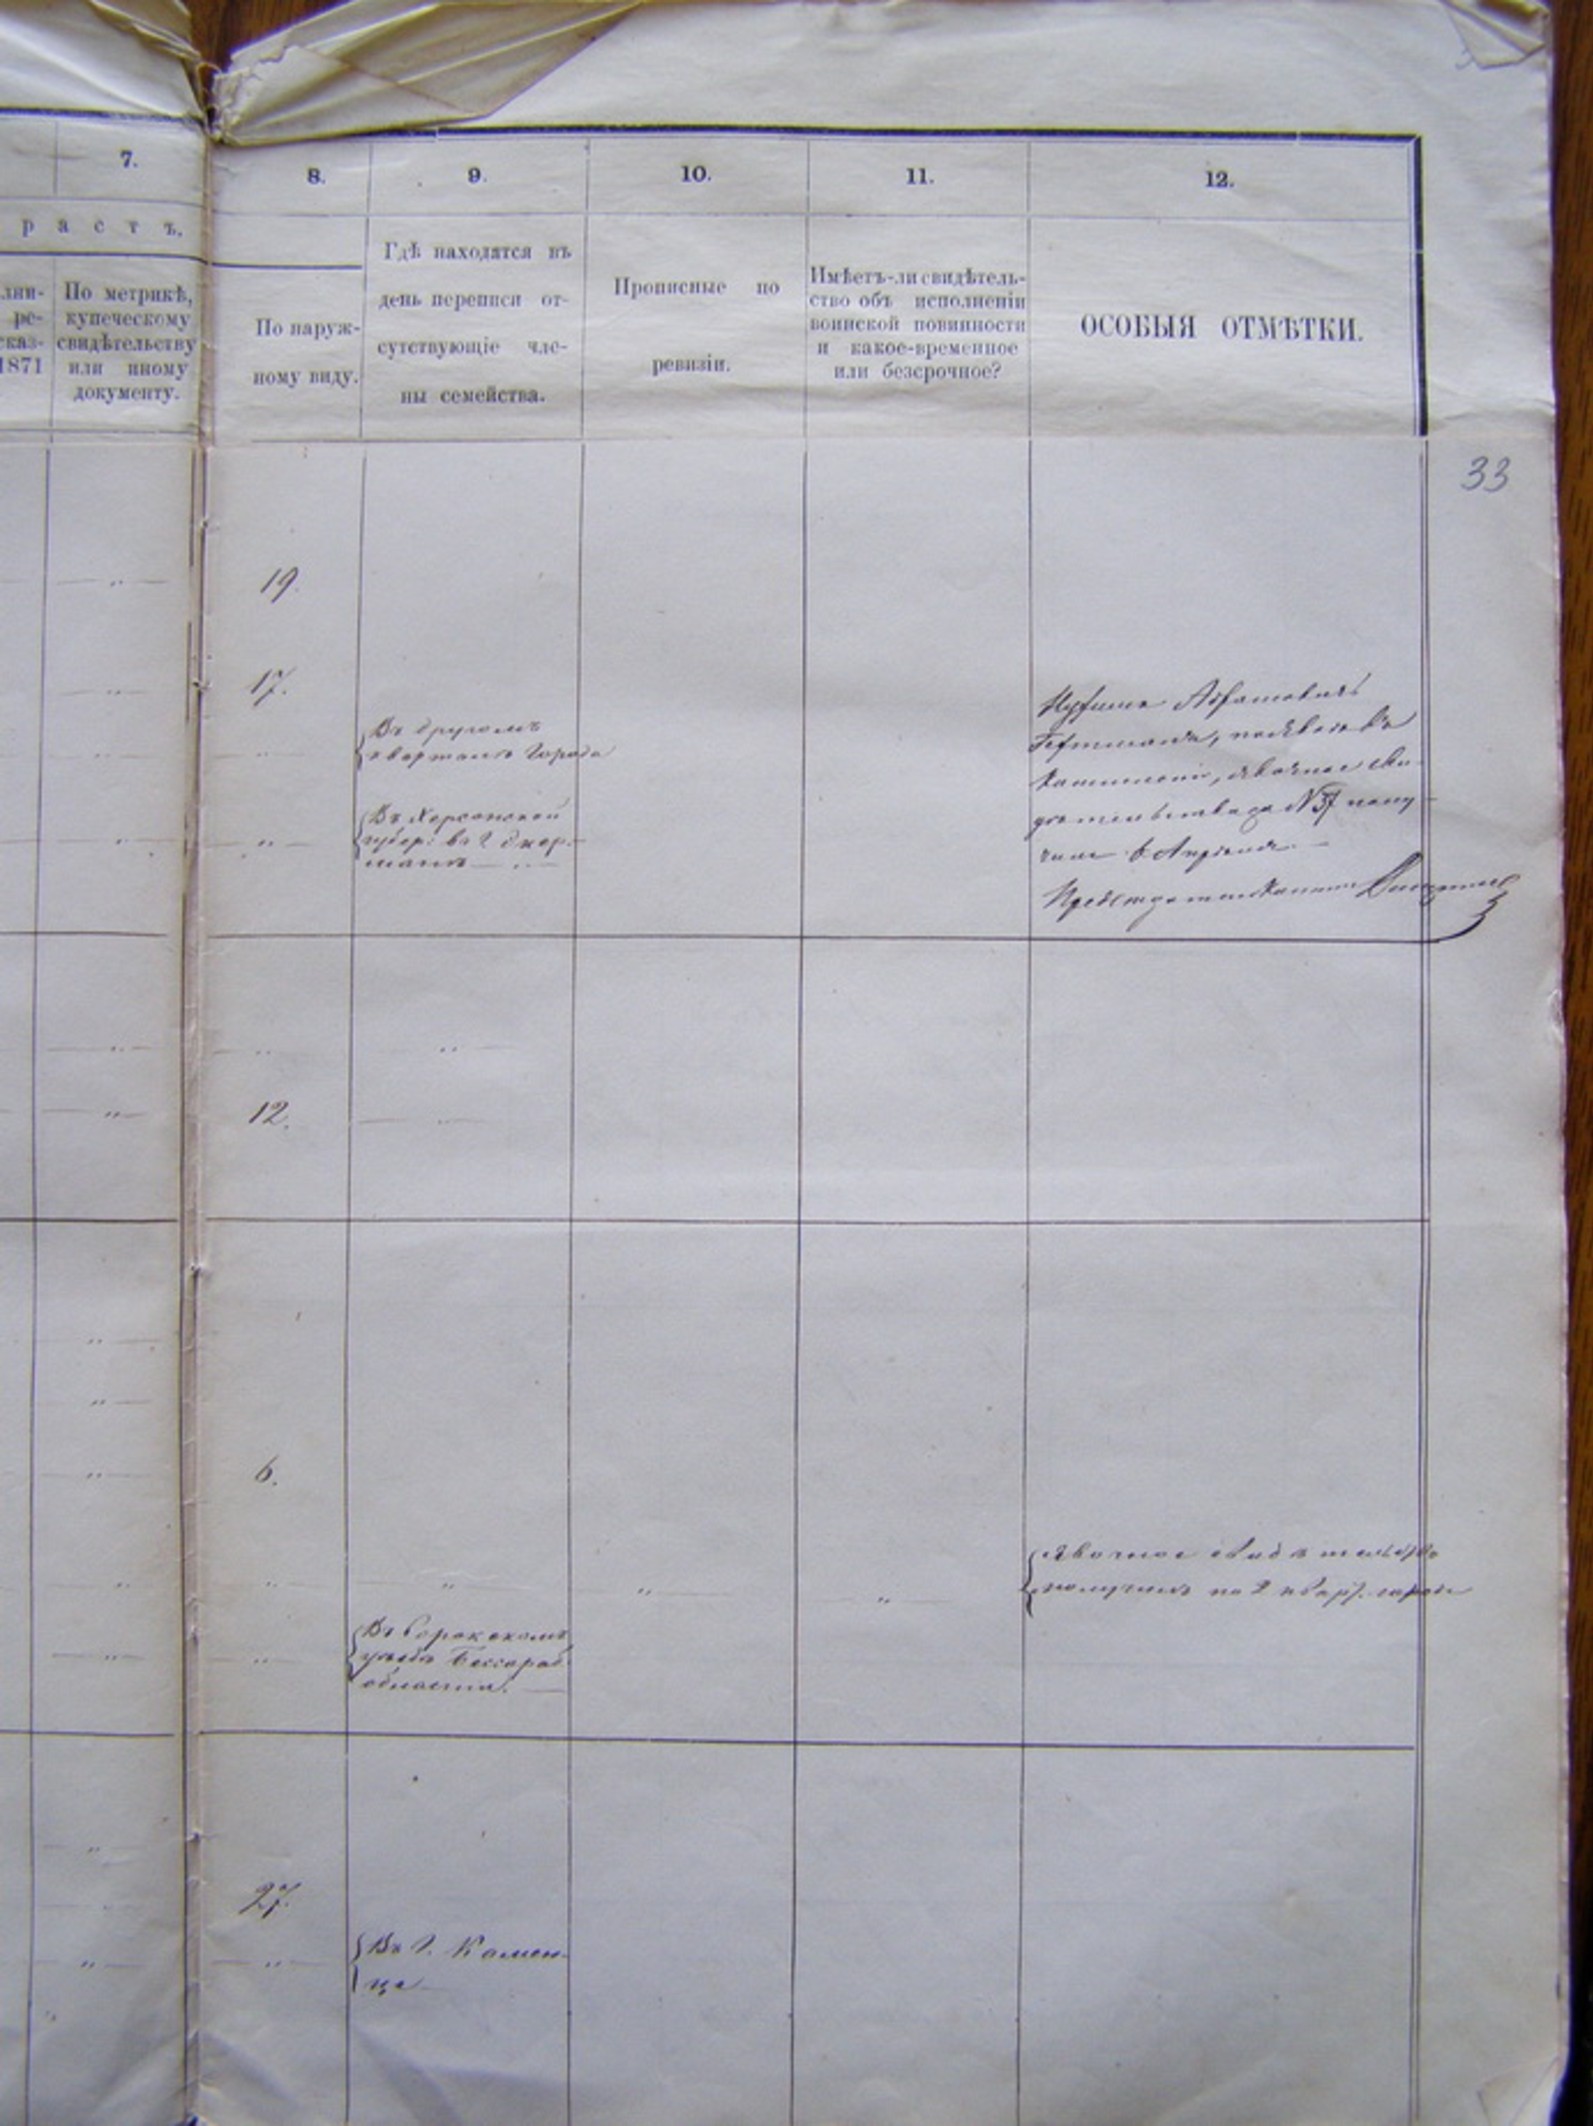 7.
8.
9.
10.
11.
12.
р а с т ъ.
лни-
ре-
сказ-
1871
По метрикѣ,
купеческому
свидѣтельству
или иному
документу.
По наруж-
ному виду.
Гдѣ находятся въ
день переписи от-
сутствующіе чле-
ны семейства.
Прописные по
ревизіи.
Имѣетъ-ли свидѣтель-
ство объ исполненіи
воинской повинности
и какое-временное
или безсрочное?
ОСОБЫЯ ОТМѢТКИ.
33
19.
17.
Въ другомъ
кварталѣ города
Въ Херсонской
губер: въ г.
Абрамовичъ
№ 37
6 Апрѣля
12.
6.
Явочное свидѣтельство
получилъ по 2 кварт. города
Въ Сорокскомъ
уѣздѣ Бессараб.
области.
27.
Въ г. Камен-
цѣ